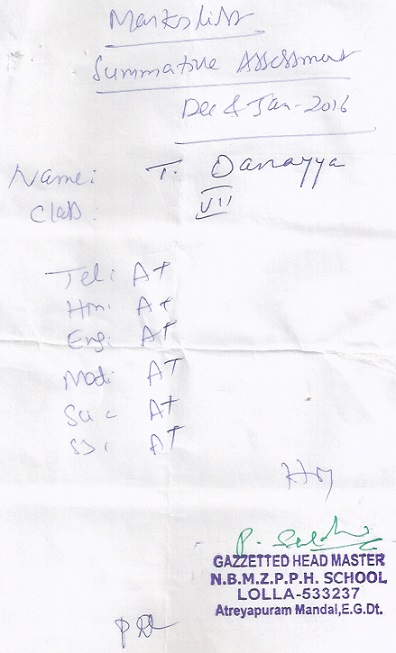 Marks list
Summative Assessment
Dec & Jan-2016
Name: T. Danayya
Class: VII
Tel: A+
Hin: A+
Eng: A+
Mat: A+
Sci: A+
SS: A+
Hm
GAZZETTED HEAD MASTER
N.B.M.Z.P.P.H. SCHOOL
LOLLA-533237
Atreyapuram Mandal,E.G.Dt.